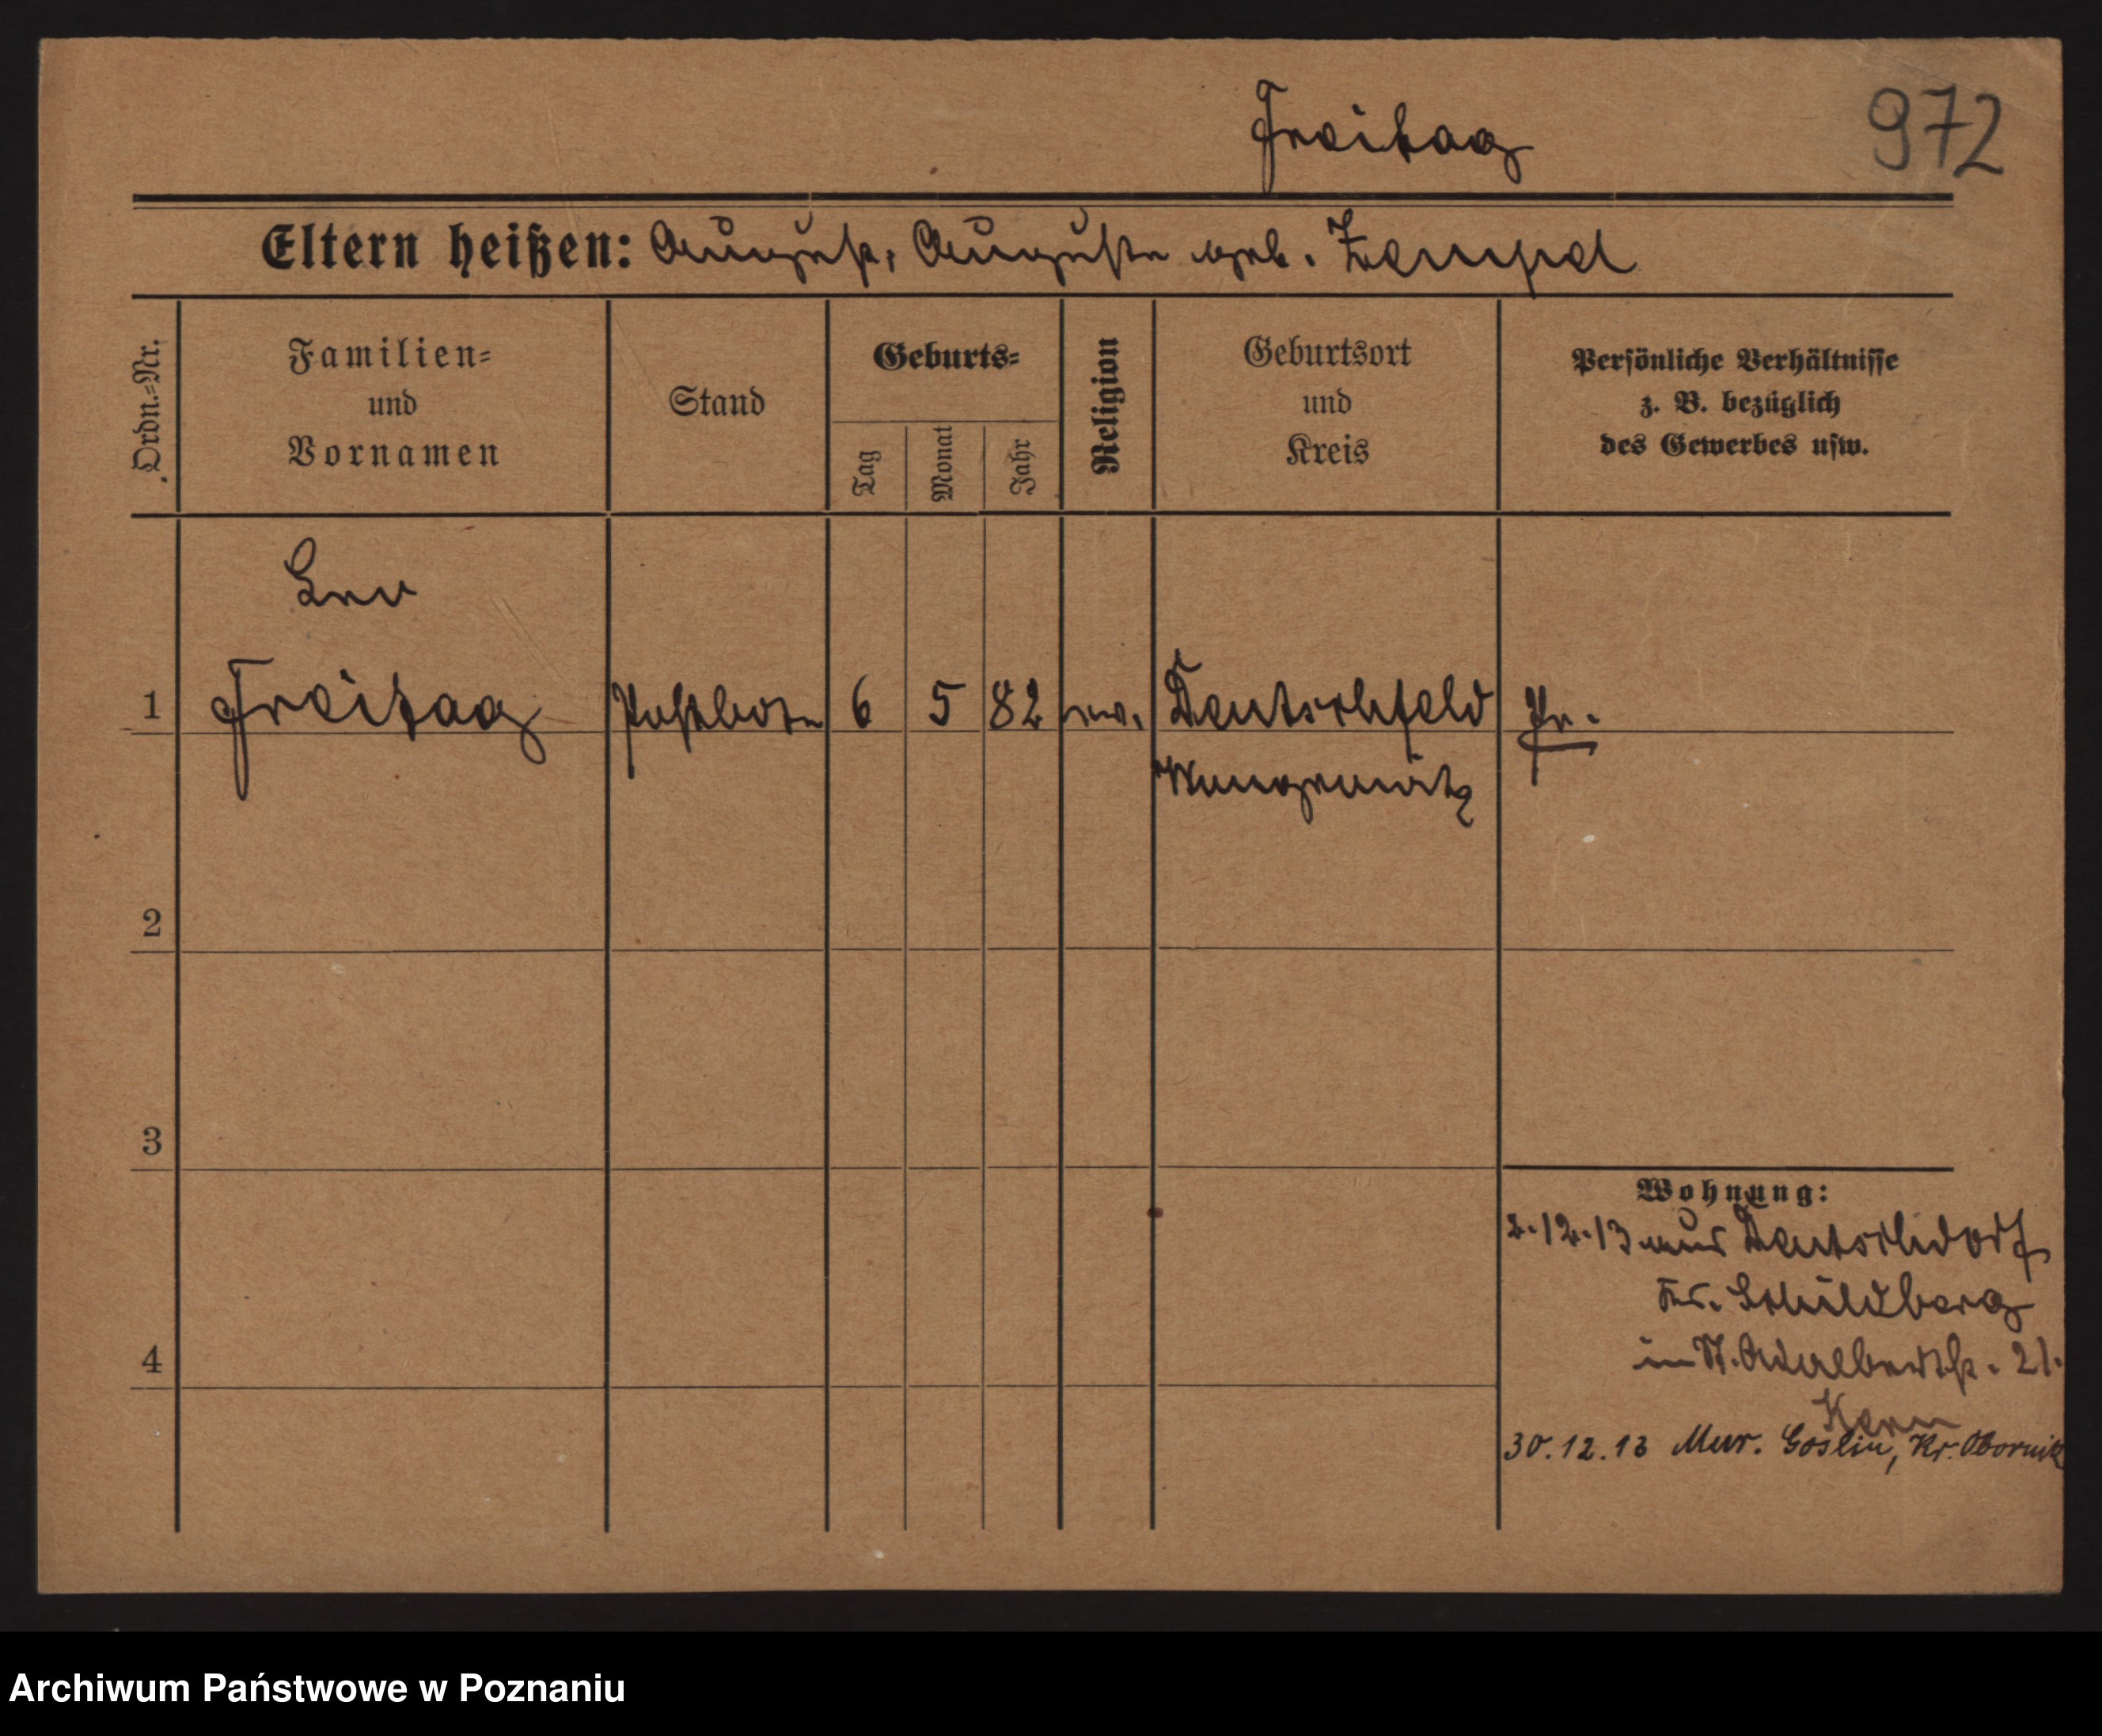 Freitag
972
Eltern heißen: August, Auguste geb. Zempel
Ordn.-Nr.
Familien-
und
Vornamen
Stand
Geburts-
Tag
Monat
Jahr
Religion
Geburtsort
und
Kreis
Persönliche Verhältnisse
z. B. bezüglich
des Gewerbes usw.
Leo
1 Freitag Postbote 6 5 82 ev. Deutschfeld Pr.
Wongrowitz
2
3
4
Wohnung:
2.12.13 aus Deutschdorf
Kr. Schildberg
in St. Adalbertstr. 21.
30.12.13 Mur. Goslin, Kr. Obornik
Archiwum Państwowe w Poznaniu